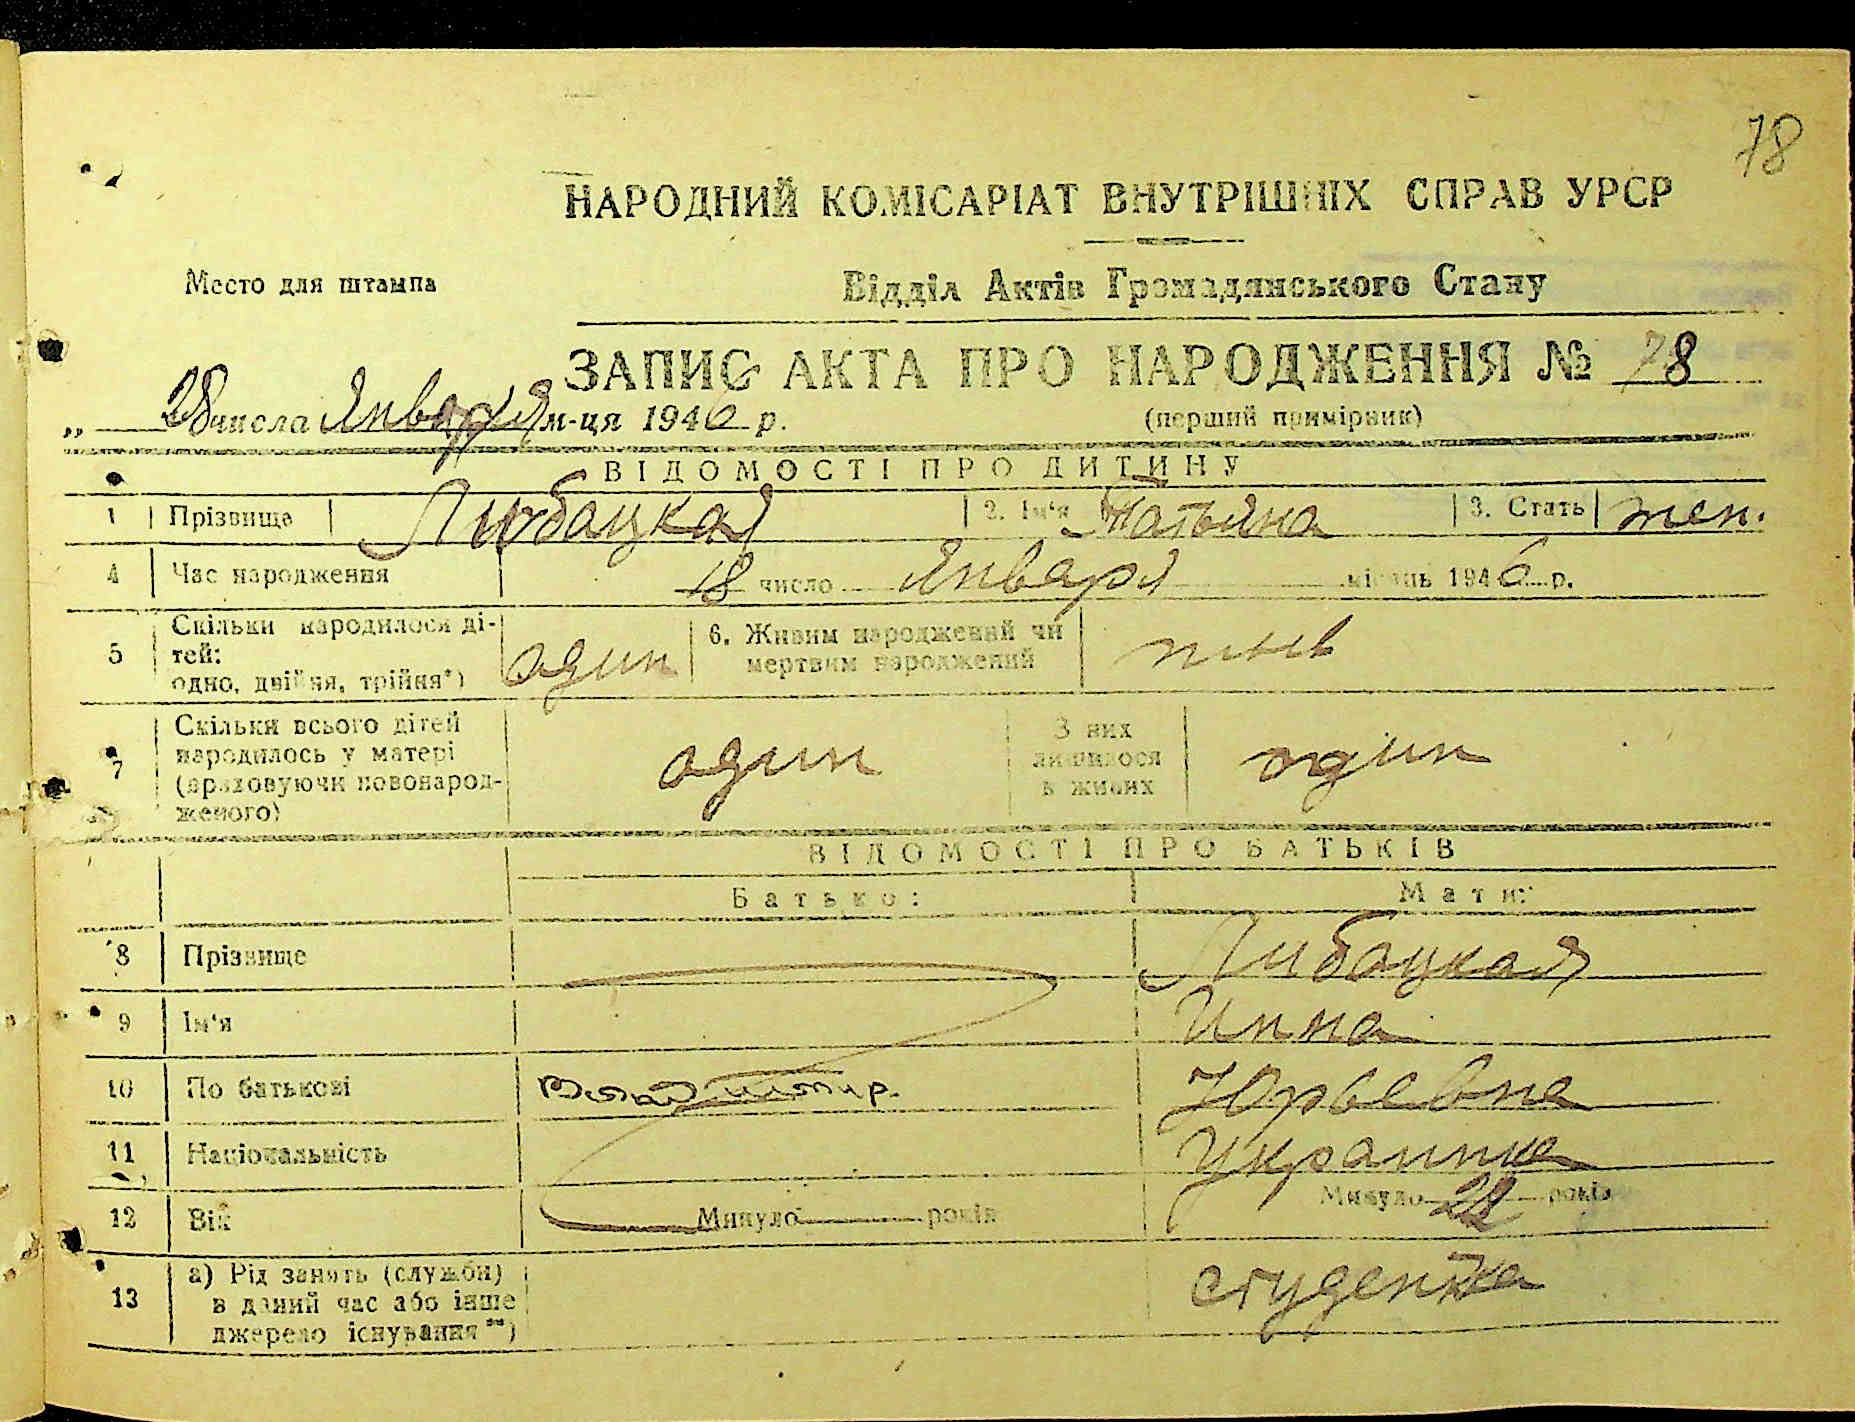 78
НАРОДНИЙ КОМІСАРІАТ ВНУТРІШНІХ СПРАВ УРСР
Место для штампа
Відділ Актів Громадянського Стану
ЗАПИС АКТА ПРО НАРОДЖЕННЯ № 78
„ 28 числа Января м-ця 1946 р.
(перший примірник)
ВІДОМОСТІ ПРО ДИТИНУ
1 Прізвище Любацкая 2. Ім'я Татьяна 3. Стать жен.
4 Час народження 18 число Января місяць 1946 р.
5 Скільки народилося ді-
тей:
одно, двійня, трійня*) один
6. Живим народжений чи
мертвим народжений
7 Скільки всього дітей
народилось у матері
(враховуючи новонарод-
женого) один
З них
лишилося
в живих один
ВІДОМОСТІ ПРО БАТЬКІВ
Батько: Мати:
8 Прізвище Любацкая
9 Ім'я Инна
10 По батькові Владимир. Юрьевна
11 Національність Украинка
12 Вік Минуло років Минуло років
13 а) Рід занять (служби)
в даний час або інше
джерело існування**) студентка